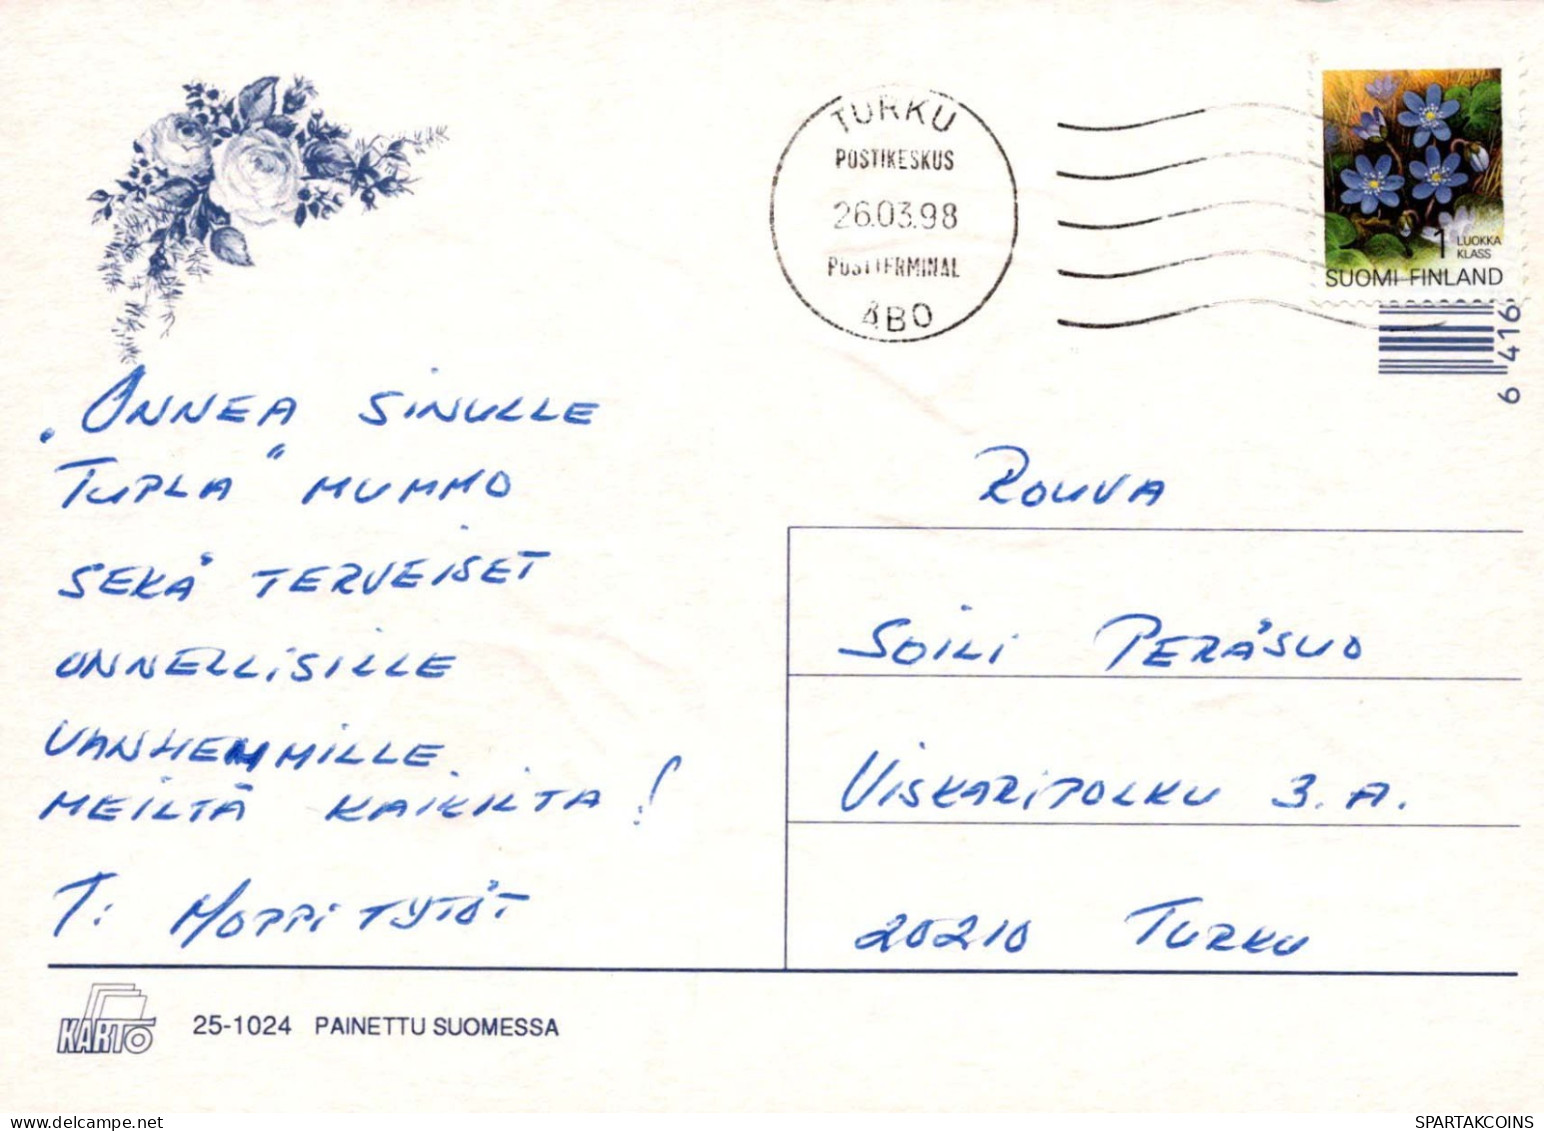 TURKU
POSTIKESKUS
26.03.98
POSTTERMINAL
ÅBO
1 LUOKKA
KLASS
SUOMI-FINLAND
6 416
„ONNEA SINULLE
TUPLA" MUMMO
SEKÄ TERVEISET
ONNELLISILLE
VANHEMMILLE
MEILTÄ KAIKILTA!
T: HOPPI TYTÖT
ROUVA
SOILI PERÄSUO
VISKARIPOLKU 3.A.
20210 TURKU
KARTO 25-1024 PAINETTU SUOMESSA
SPARTAKCOINS